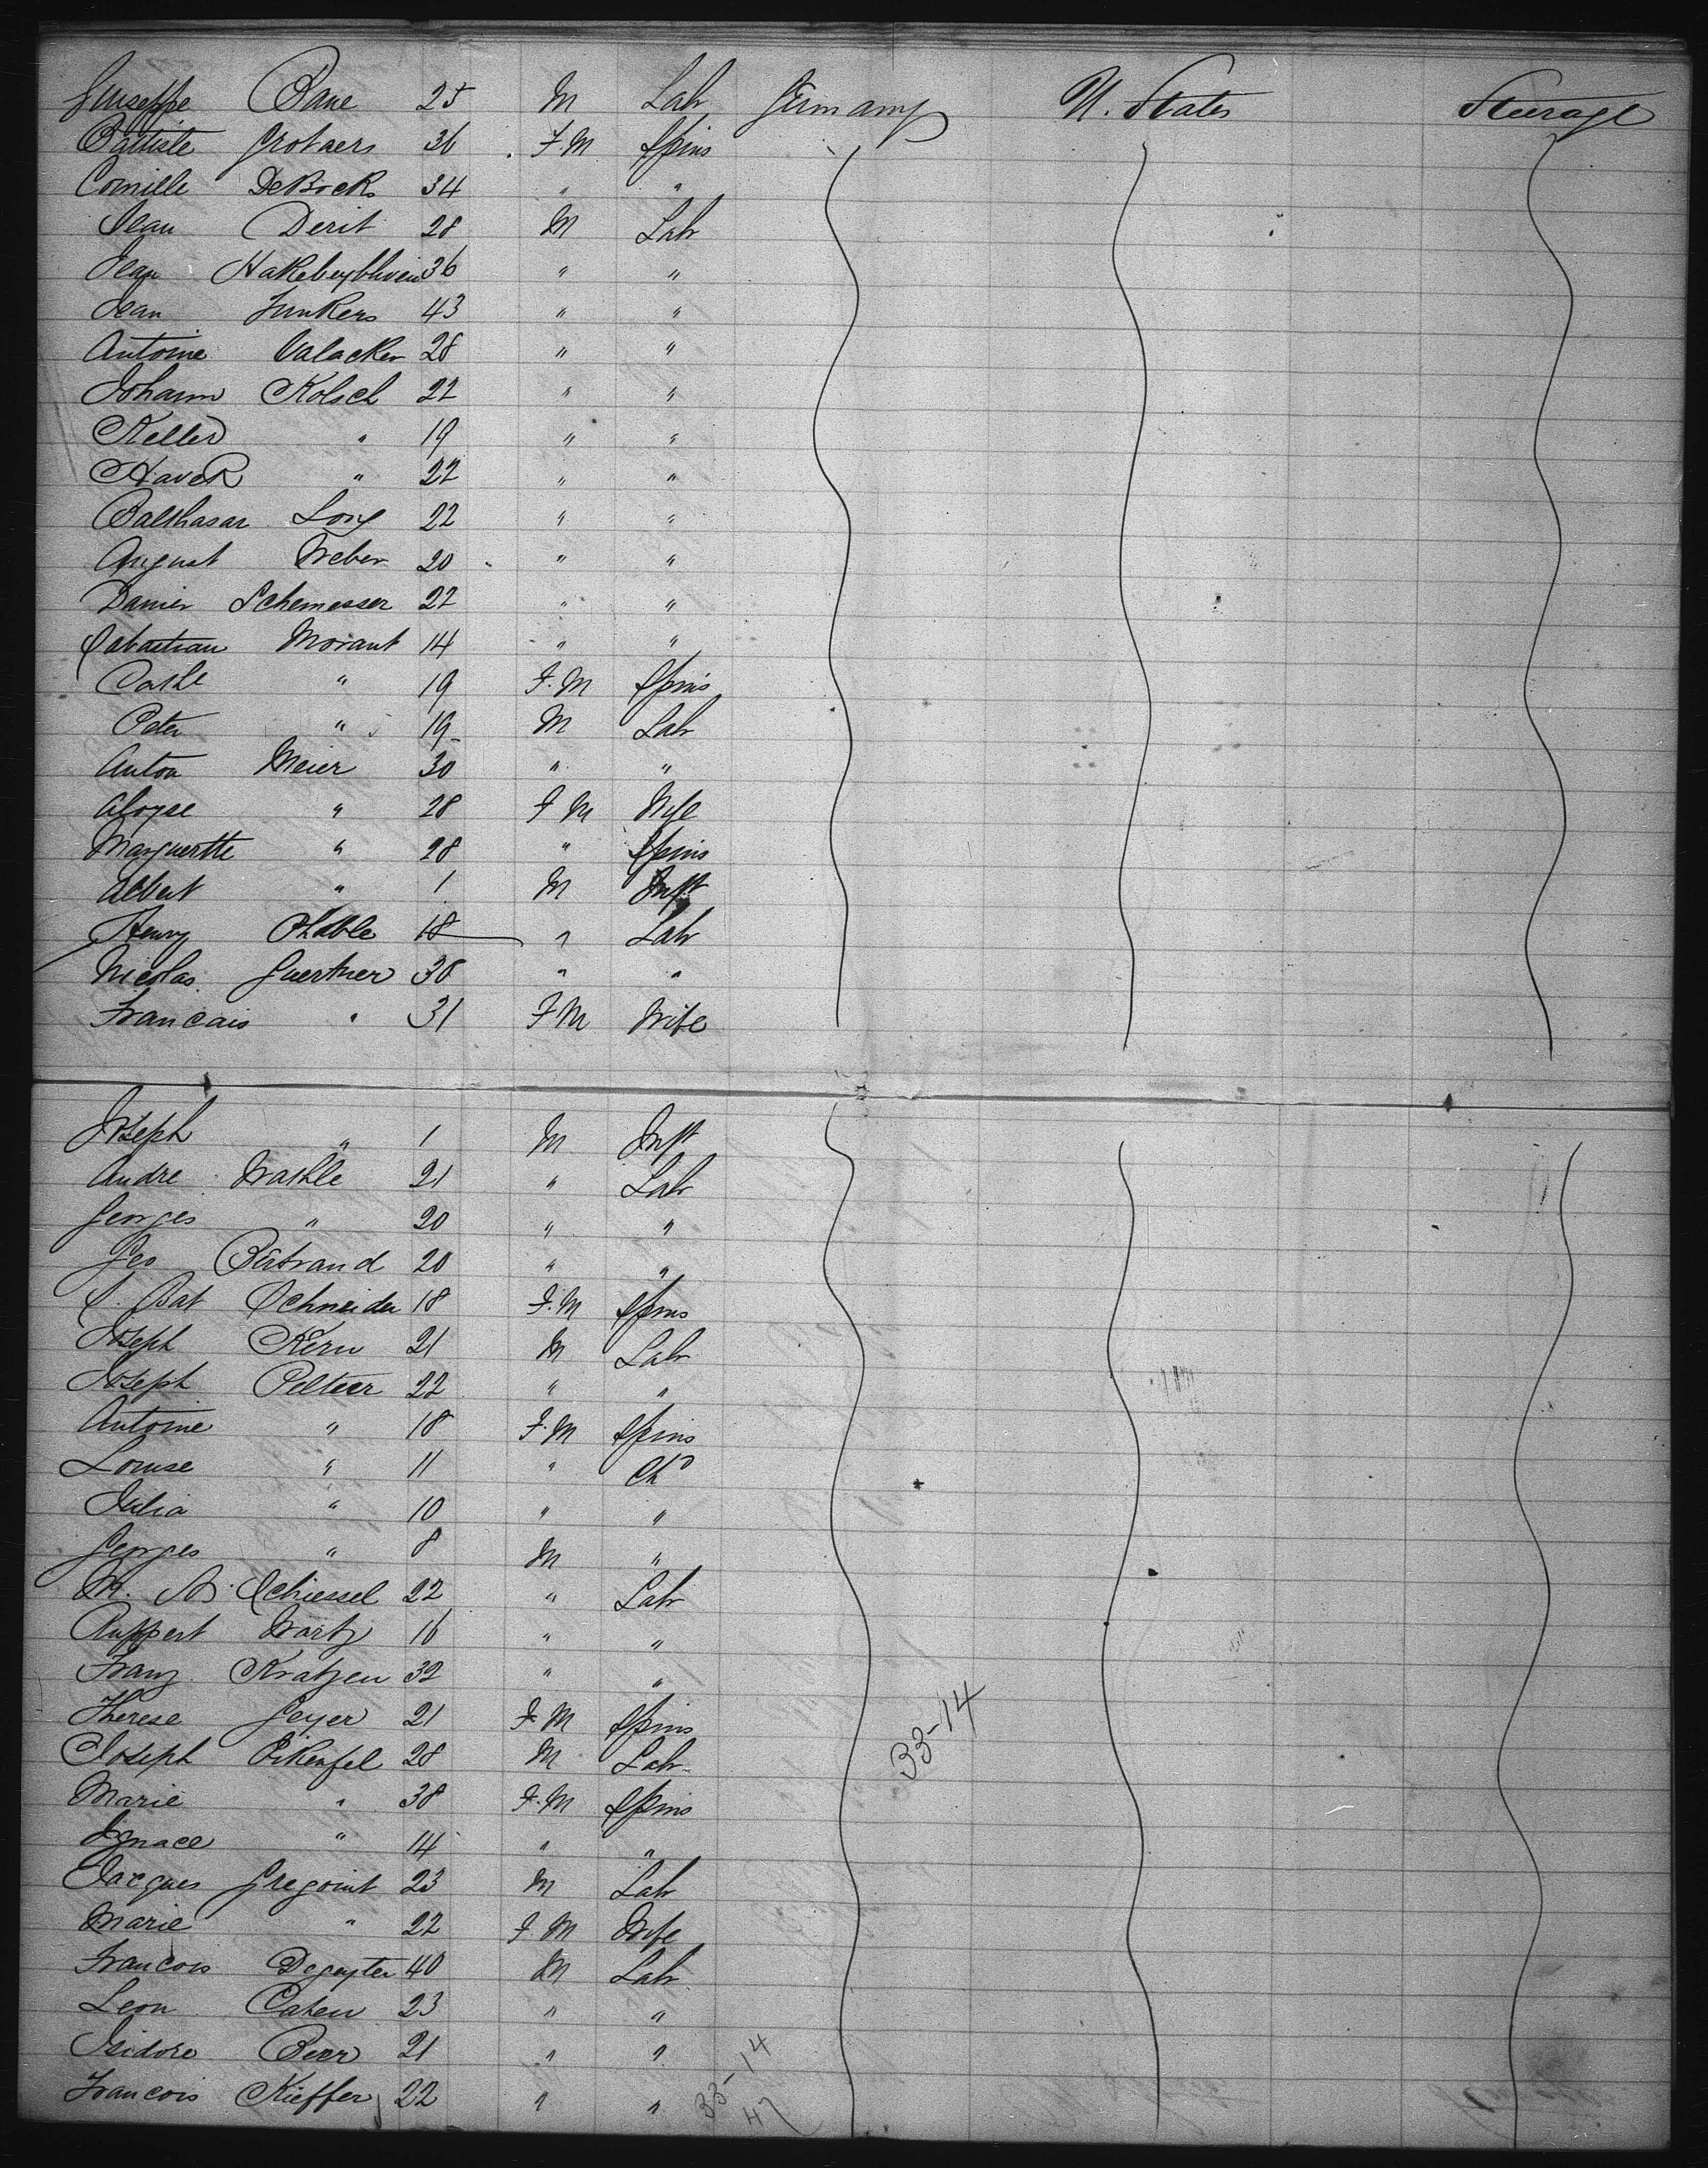 Guiseppe Bane 25 M Lab Germany U. States Steerage
Battiste Grotaers 36 F.M Spins
Comille DeBock 34 " "
Jean Derit 28 M Lab
Jean 36 " "
Jean Junkers 43 " "
Antoine Valacker 28 " "
Johann Kolsch 22 " "
Keller " 19 " "
Haver " 22 " "
Balthasar Long 22 " "
August Weber 20 " "
Danier Schemesser 22 " "
Sabastian Morant 14 " "
Cathe " 19 F.M Spins
Peter " 19 M Lab
Anton Meier 30 " "
Aloyse " 28 F M Wife
Marguertte " 28 " Spins
Albert " 1 M Inft
Henry Chable 18 " Lab
Nicolas Guertner 38 " "
Francais " 31 F M Wife
Joseph " 1 M Inft
Andre Wathle 21 " Lab
Georges " 20 " "
Geo Bertrand 20 " "
J. Bat Schneider 18 F.M Spins
Joseph Kern 21 M Lab
Joseph Peltier 22 " "
Antoine " 18 F.M Spins
Louise " 11 " Chd
Julia " 10 " "
Georges " 8 M "
M. A. Schiessel 22 " Lab
Ruppert Wartz 16 " "
Franz Kratzen 32 " "
Therese Geyer 21 F.M Spins
Joseph Eikenfel 28 M Lab
33-14
Marie " 38 F.M Spins
Ignace " 14 " "
Jacques Gregoint 23 M Lab
Marie " 22 F.M Wife
Francois Degeyter 40 M Lab
Leon Cahen 23 " "
Isidore Beer 21 " "
Francois Kieffer 22 " "
33-14
47